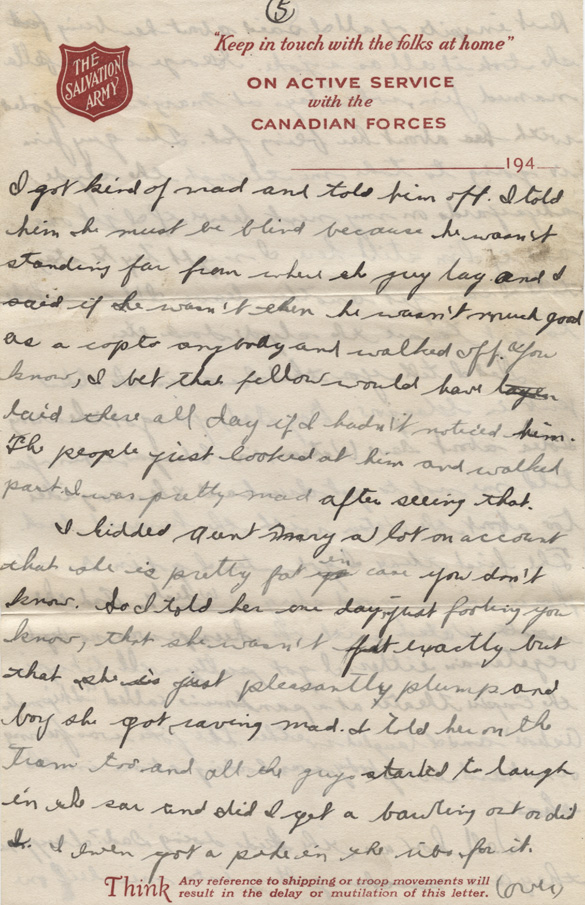 5
THE
SALVATION
ARMY
"Keep in touch with the folks at home"
ON ACTIVE SERVICE
with the
CANADIAN FORCES
194
I got kind of mad and told him off. I told
him he must be blind because he wasn't
standing far from where the guy lay and I
said if he wasn't then he wasn't much good
as a cop to anybody and walked off. You
know, I bet that fellow would have layen
laid there all day if I hadn't noticed him.
The people just looked at him and walked
past. I was pretty mad after seeing that.
I kidded Aunt Mary a lot on account
that she is pretty fat in case you don't
know. So I told her one day, just fooling you
know, that she wasn't fat exactly but
that she is just pleasantly plump and
boy she got raving mad. I told her on the
tram too and all the guys started to laugh
in the car and did I get a bawling out or did
I. I even got a poke in the ribs for it.
Think Any reference to shipping or troop movements will
result in the delay or mutilation of this letter.
(over)